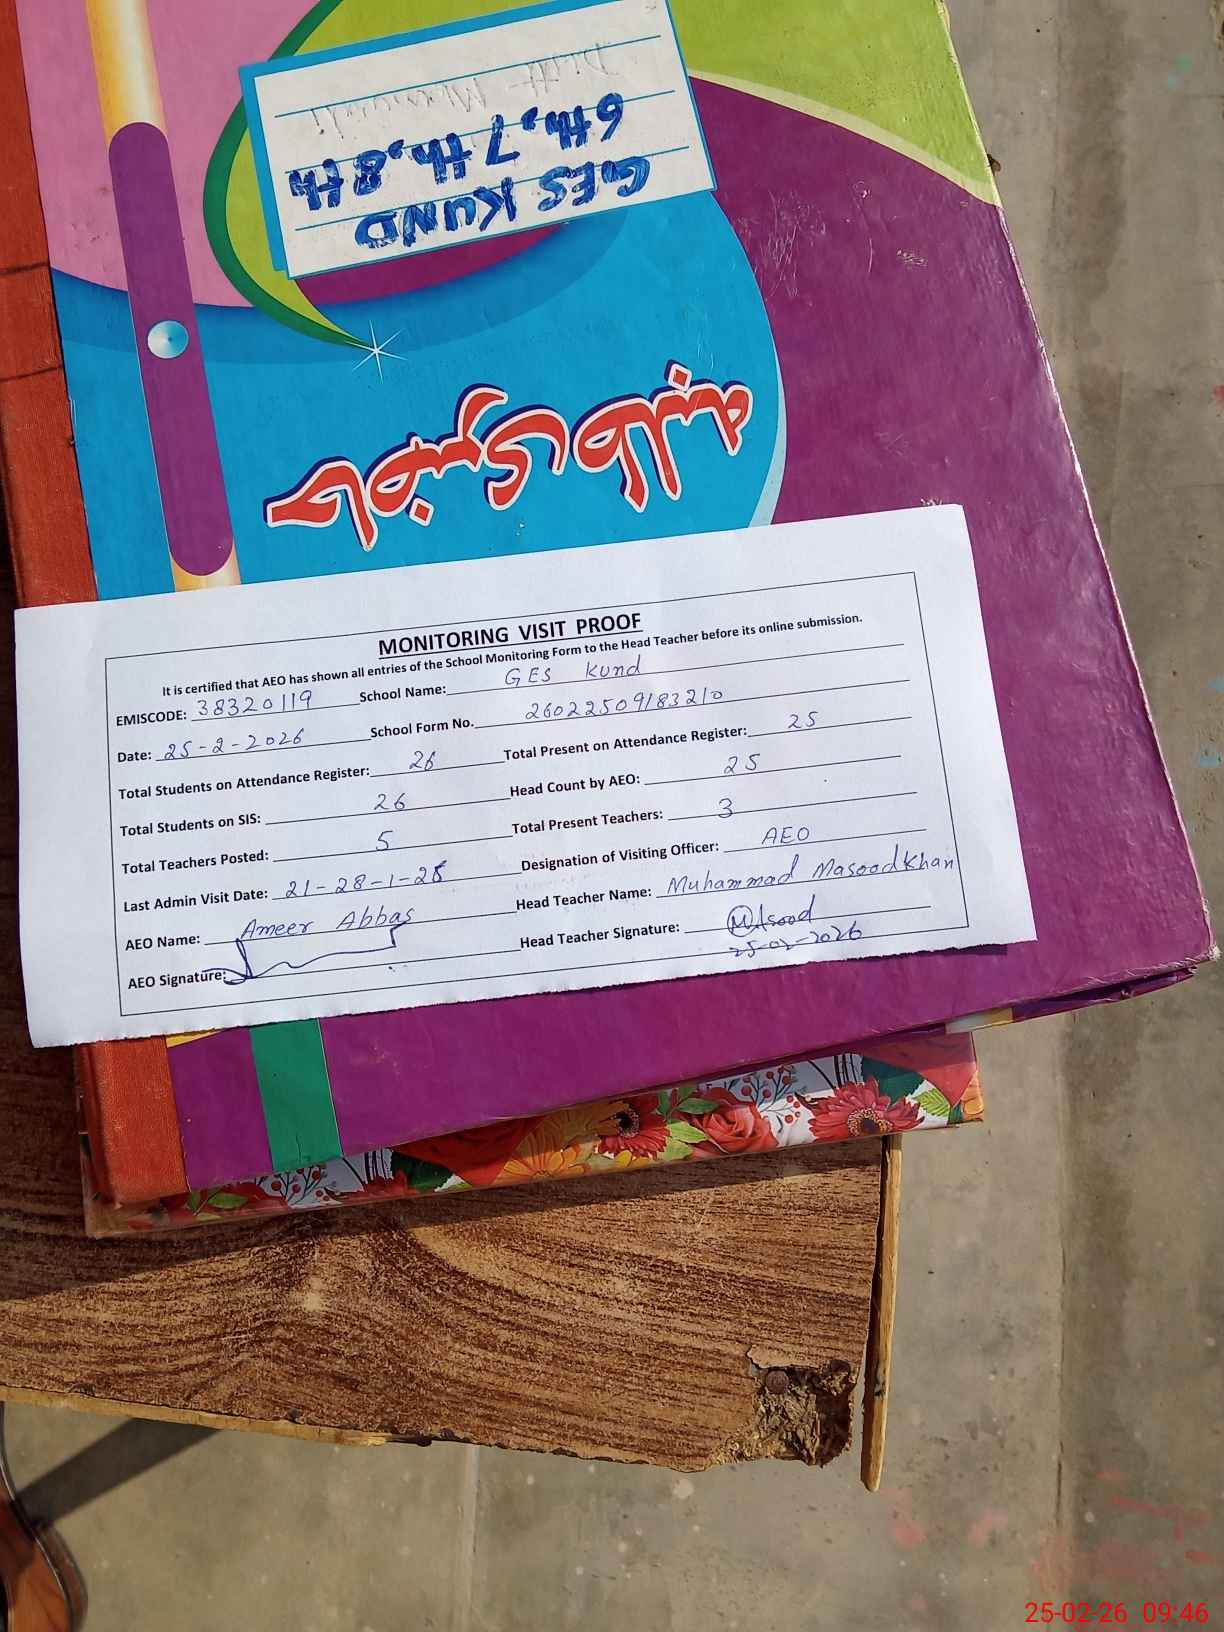 Draft Mawazahi
6th, 7th, 8th
GES KUND
رجسٹر حاضری طلباء
MONITORING VISIT PROOF
It is certified that AEO has shown all entries of the School Monitoring Form to the Head Teacher before its online submission.
EMISCODE: 38320119 School Name: GES Kund
Date: 25-2-2026 School Form No. 26022509183210
Total Students on Attendance Register: 26 Total Present on Attendance Register: 25
Total Students on SIS: 26 Head Count by AEO: 25
Total Teachers Posted: 5 Total Present Teachers: 3
Last Admin Visit Date: 21-28-1-26 Designation of Visiting Officer: AEO
AEO Name: Ameer Abbas Head Teacher Name: Muhammad Masood Khan
AEO Signature: Head Teacher Signature: Masood
25-02-2026
25-02-26 09:46